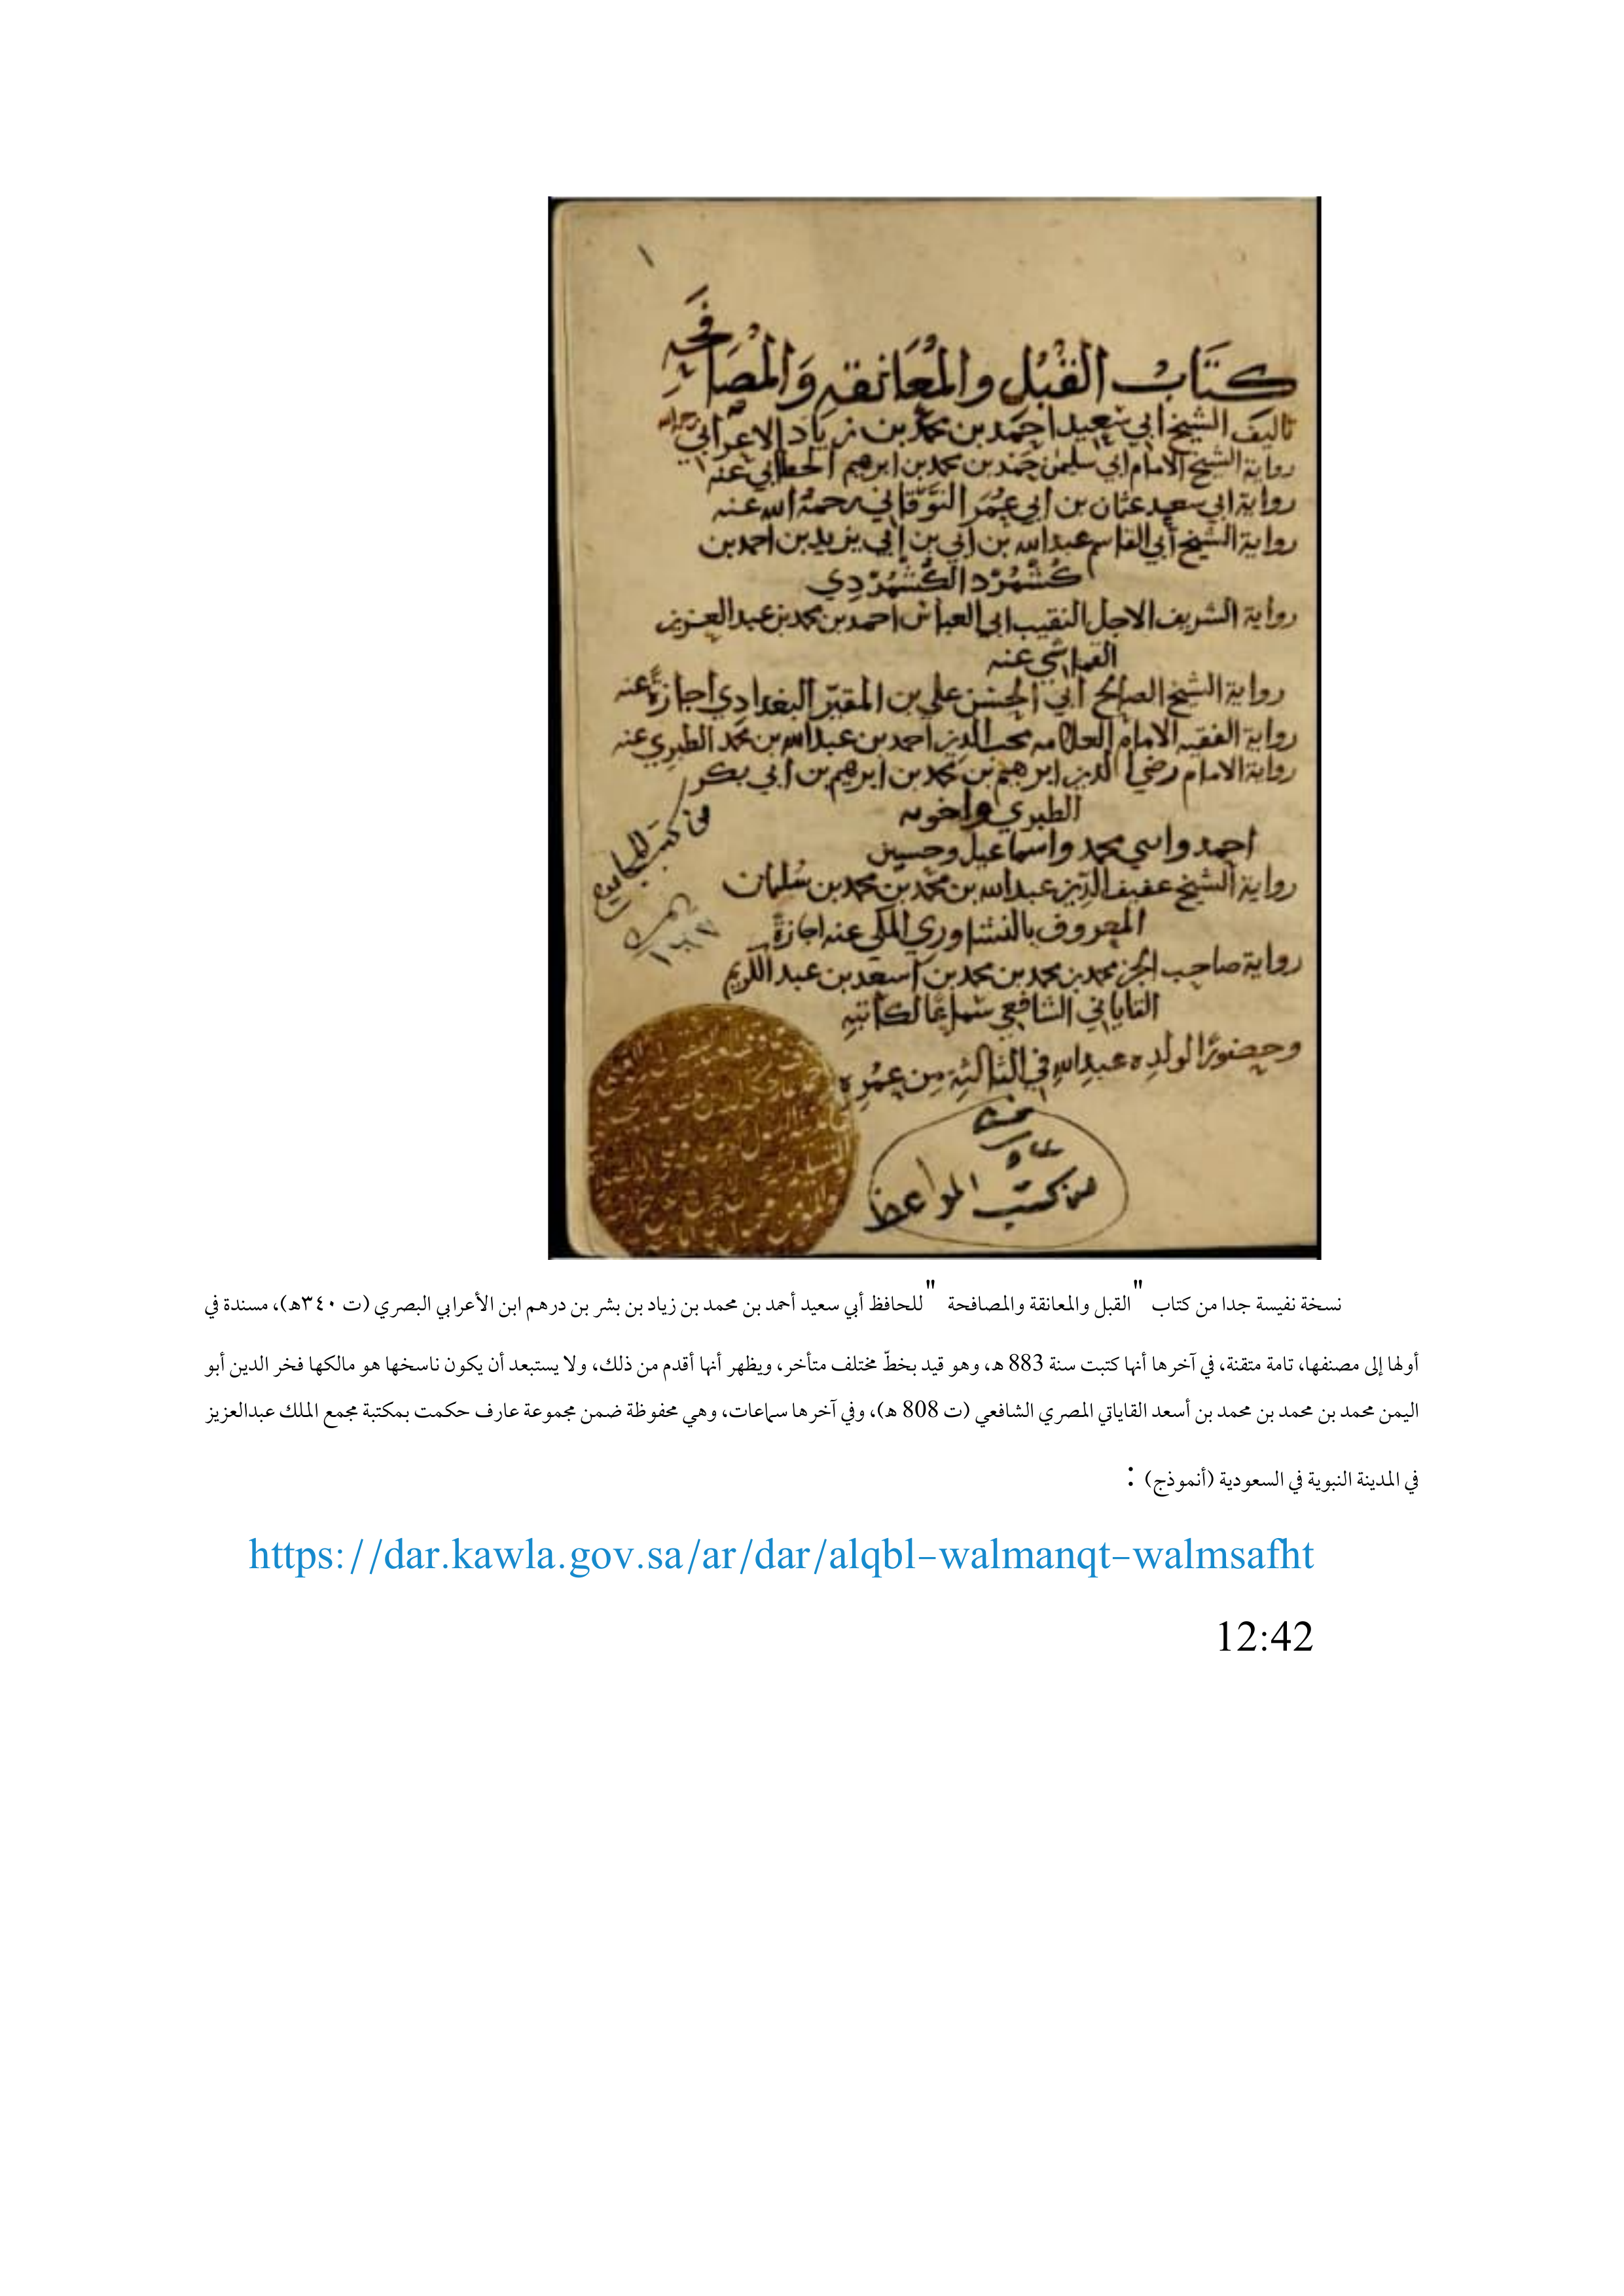 ١
كتَابُ القُبَل والمُعَانقه وَالمُصَافَحه
تاليف الشيخ ابي سَعيد احمَد بن محمد بن زيَاد الاعرابي رحمه الله
رواية الشيخ الامام ابي سليمن حمد بن محمد بن ابرهيم الخطابي عنه
رواية ابي سعيد عثمان بن ابي عُمَر النَّوقَاني رحمهُ الله عنه
رواية الشيخ أبي القاسم عبد الله بن أبي بن إبي يزيد بن احمد بن
كُشْمُرْد الكُشْمُرْدِي
رواية الشريف الاجل النقيب ابي العباس احمد بن محمد بن عبد العزيز
العباسي عنه
رواية الشيخ الصالح أبي الحسَن علي بن المقيّر البغدادِي اجازةً عنه
رواية الفقيه الامام العلامه محب الدين احمد بن عبد الله بن محمد الطبري عنه
رواية الامام رضي الدين ابرهيم بن محمد بن ابرهيم بن أبي بكر
الطبري واخوته
احمد وابني محمد واسماعيل وحسين
رواية الشيخ عفيف الدّين عبد الله بن محمد بن محمد بن سُليمان
المعروف بالنشاوري المكي عنه اجازةً
رواية صاحب الجزء محمد بن محمد بن محمد بن أسعد بن عبد الكريم
القاياتي الشافعي سَمَاعًا لكاتبه
وحضورًا لولدِه عبدِ اللهِ في الثالثةِ مِن عُمُرِهِ
من كتب المواعظ
نسخة نفيسة جدا من كتاب "القبل والمعانقة والمصافحة "للحافظ أبي سعيد أحمد بن محمد بن زياد بن بشر بن درهم ابن الأعرابي البصري (ت ٣٤٠هـ)، مسندة في
أولها إلى مصنفها، تامة متقنة، في آخرها أنها كتبت سنة 883 هـ، وهو قيد بخطّ مختلف متأخر، ويظهر أنها أقدم من ذلك، ولا يستبعد أن يكون ناسخها هو مالكها فخر الدين أبو
اليمن محمد بن محمد بن محمد بن أسعد القاياتي المصري الشافعي (ت 808 هـ)، وفي آخرها سماعات، وهي محفوظة ضمن مجموعة عارف حكمت بمكتبة مجمع الملك عبدالعزيز
في المدينة النبوية في السعودية (أنموذج) :
https://dar.kawla.gov.sa/ar/dar/alqbl-walmanqt-walmsafht
12:42